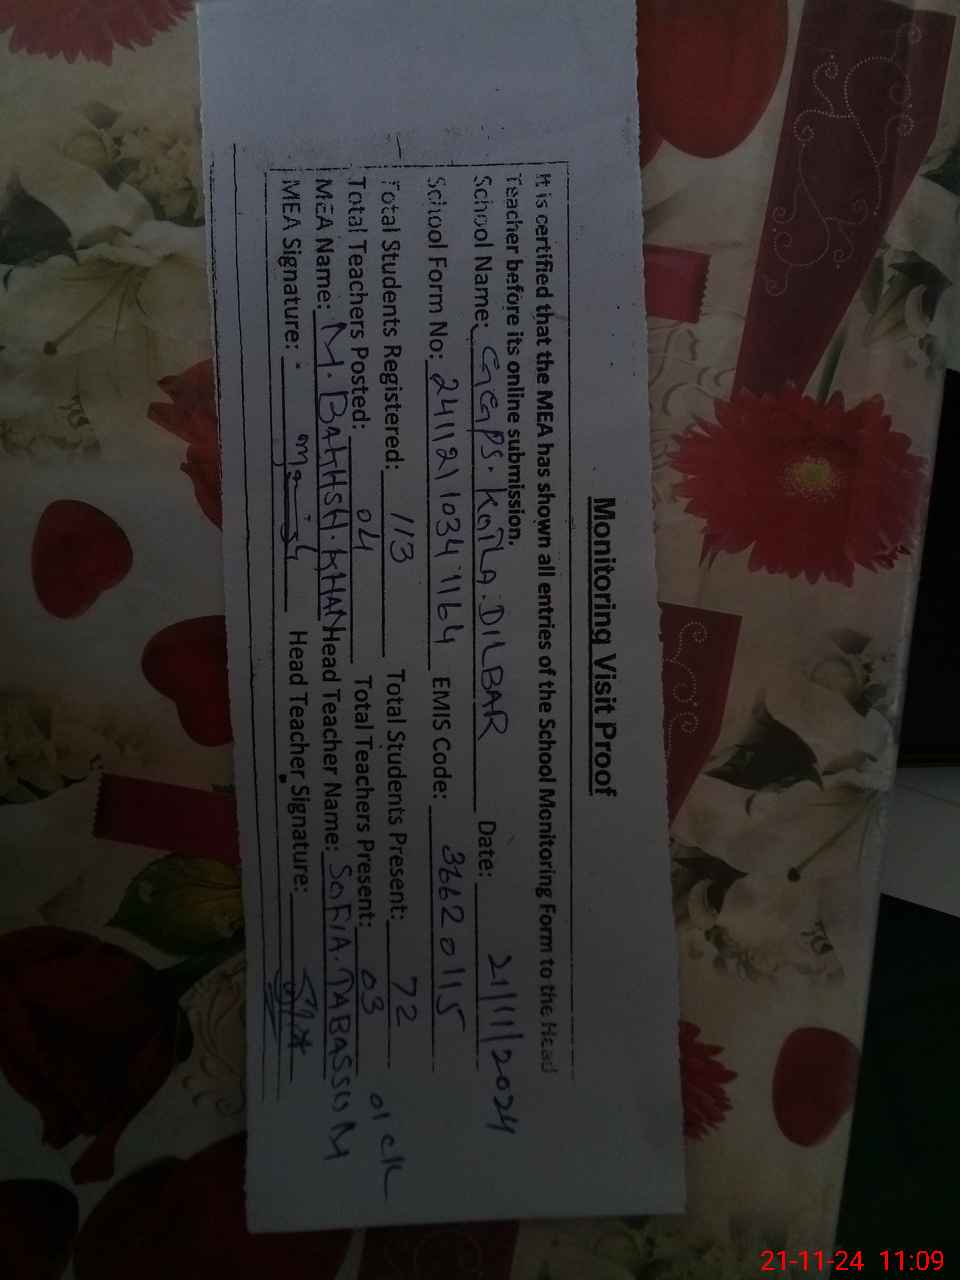 Monitoring Visit Proof
It is certified that the MEA has shown all entries of the School Monitoring Form to the Head
Teacher before its online submission.
School Name: GGPS. KOTLA. DILBAR Date: 21/11/2024
School Form No: 241121 1034 1164 EMIS Code: 36620115
Total Students Registered: 113 Total Students Present: 72
Total Teachers Posted: 04 Total Teachers Present: 03 01 CL
MEA Name: M. BAKHSH. KHAN Head Teacher Name: SOFIA. TABASSUM
MEA Signature: Head Teacher Signature:
21-11-24 11:09